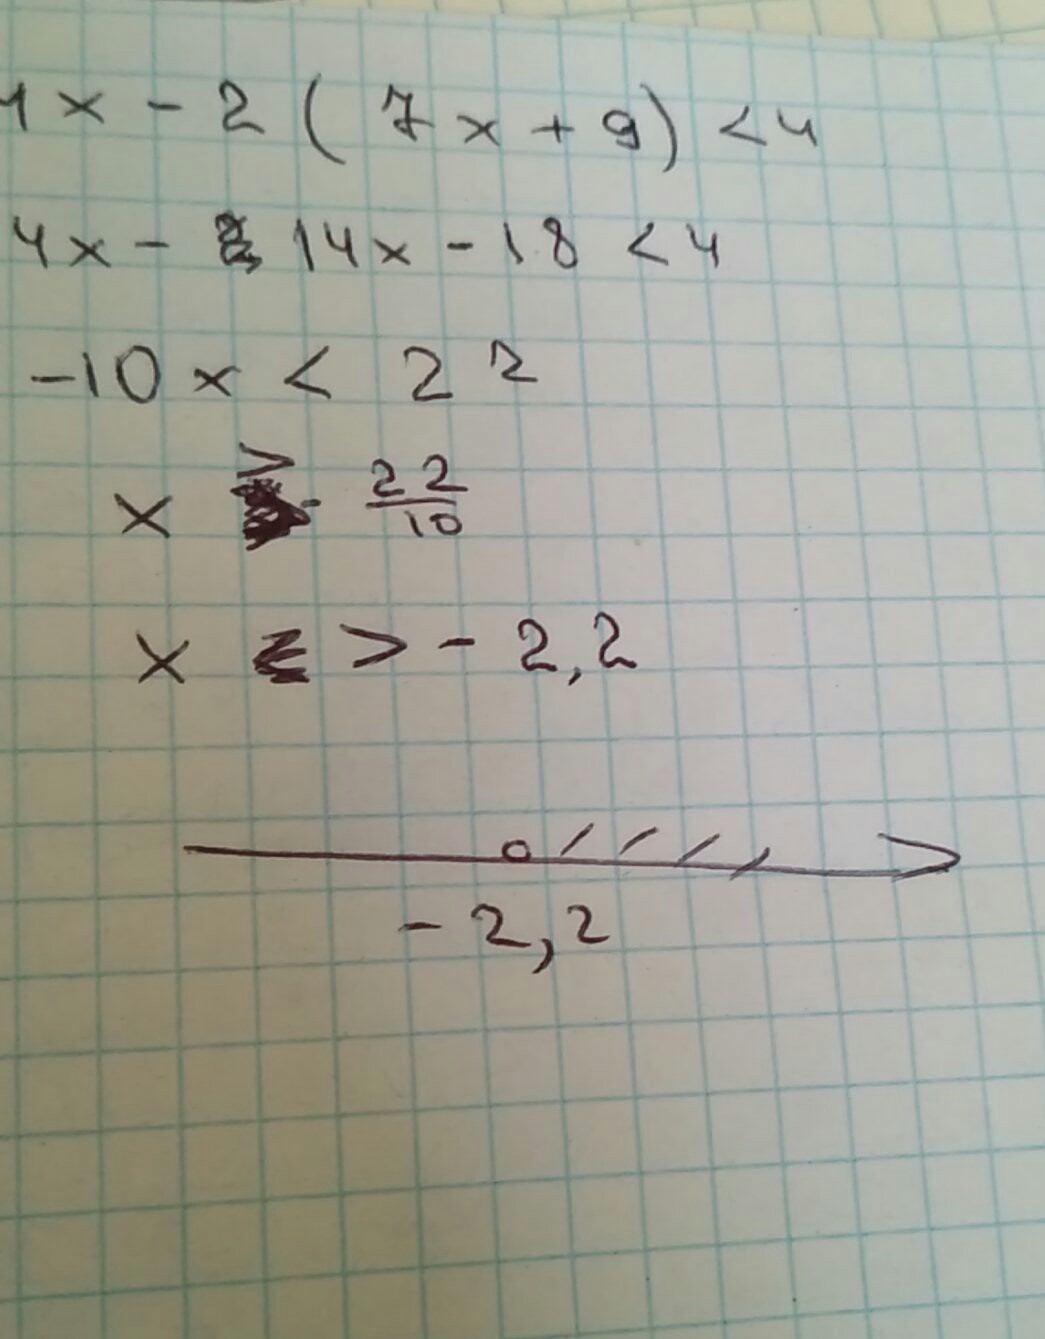 4x - 2 ( 7x + 9) < 4
4x - 14x - 18 < 4
-10x < 22
x > - 22/10
x > - 2,2
- 2,2